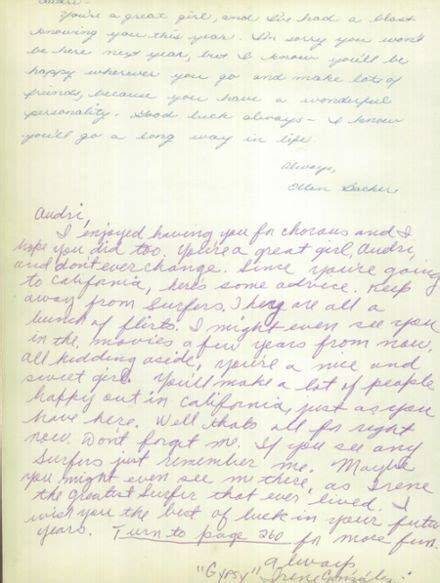 Audri -
You're a great girl, and I've had a blast
knowing you this year. I'm sorry you won't
be here next year, but I know you'll be
happy wherever you go and make lots of
friends, because you have a wonderful
personality. Good luck always - I know
you'll go a long way in life.
Always,
Ellen
Audri,
I enjoyed having you for chorous and I
hope you did too. You're a great girl, Audri,
and don't ever change. Since you're going
to California, heres some advice. Keep
away from Surfers. They are all a
bunch of flirts. I might even see you
in the movies a few years from now.
all kidding aside, you're a nice and
sweet girl. You'll make a lot of people
happy out in California, just as you
have here. Well thats all for right
now. Don't forget me. If you see any
Surfers just remember me. Maybe
you might even see me there, as Irene
the greatest Surfer that ever lived. I
wish you the best of luck in your future
years. Turn to page 260 for more fun.
Always
"Gypsy" Irene González